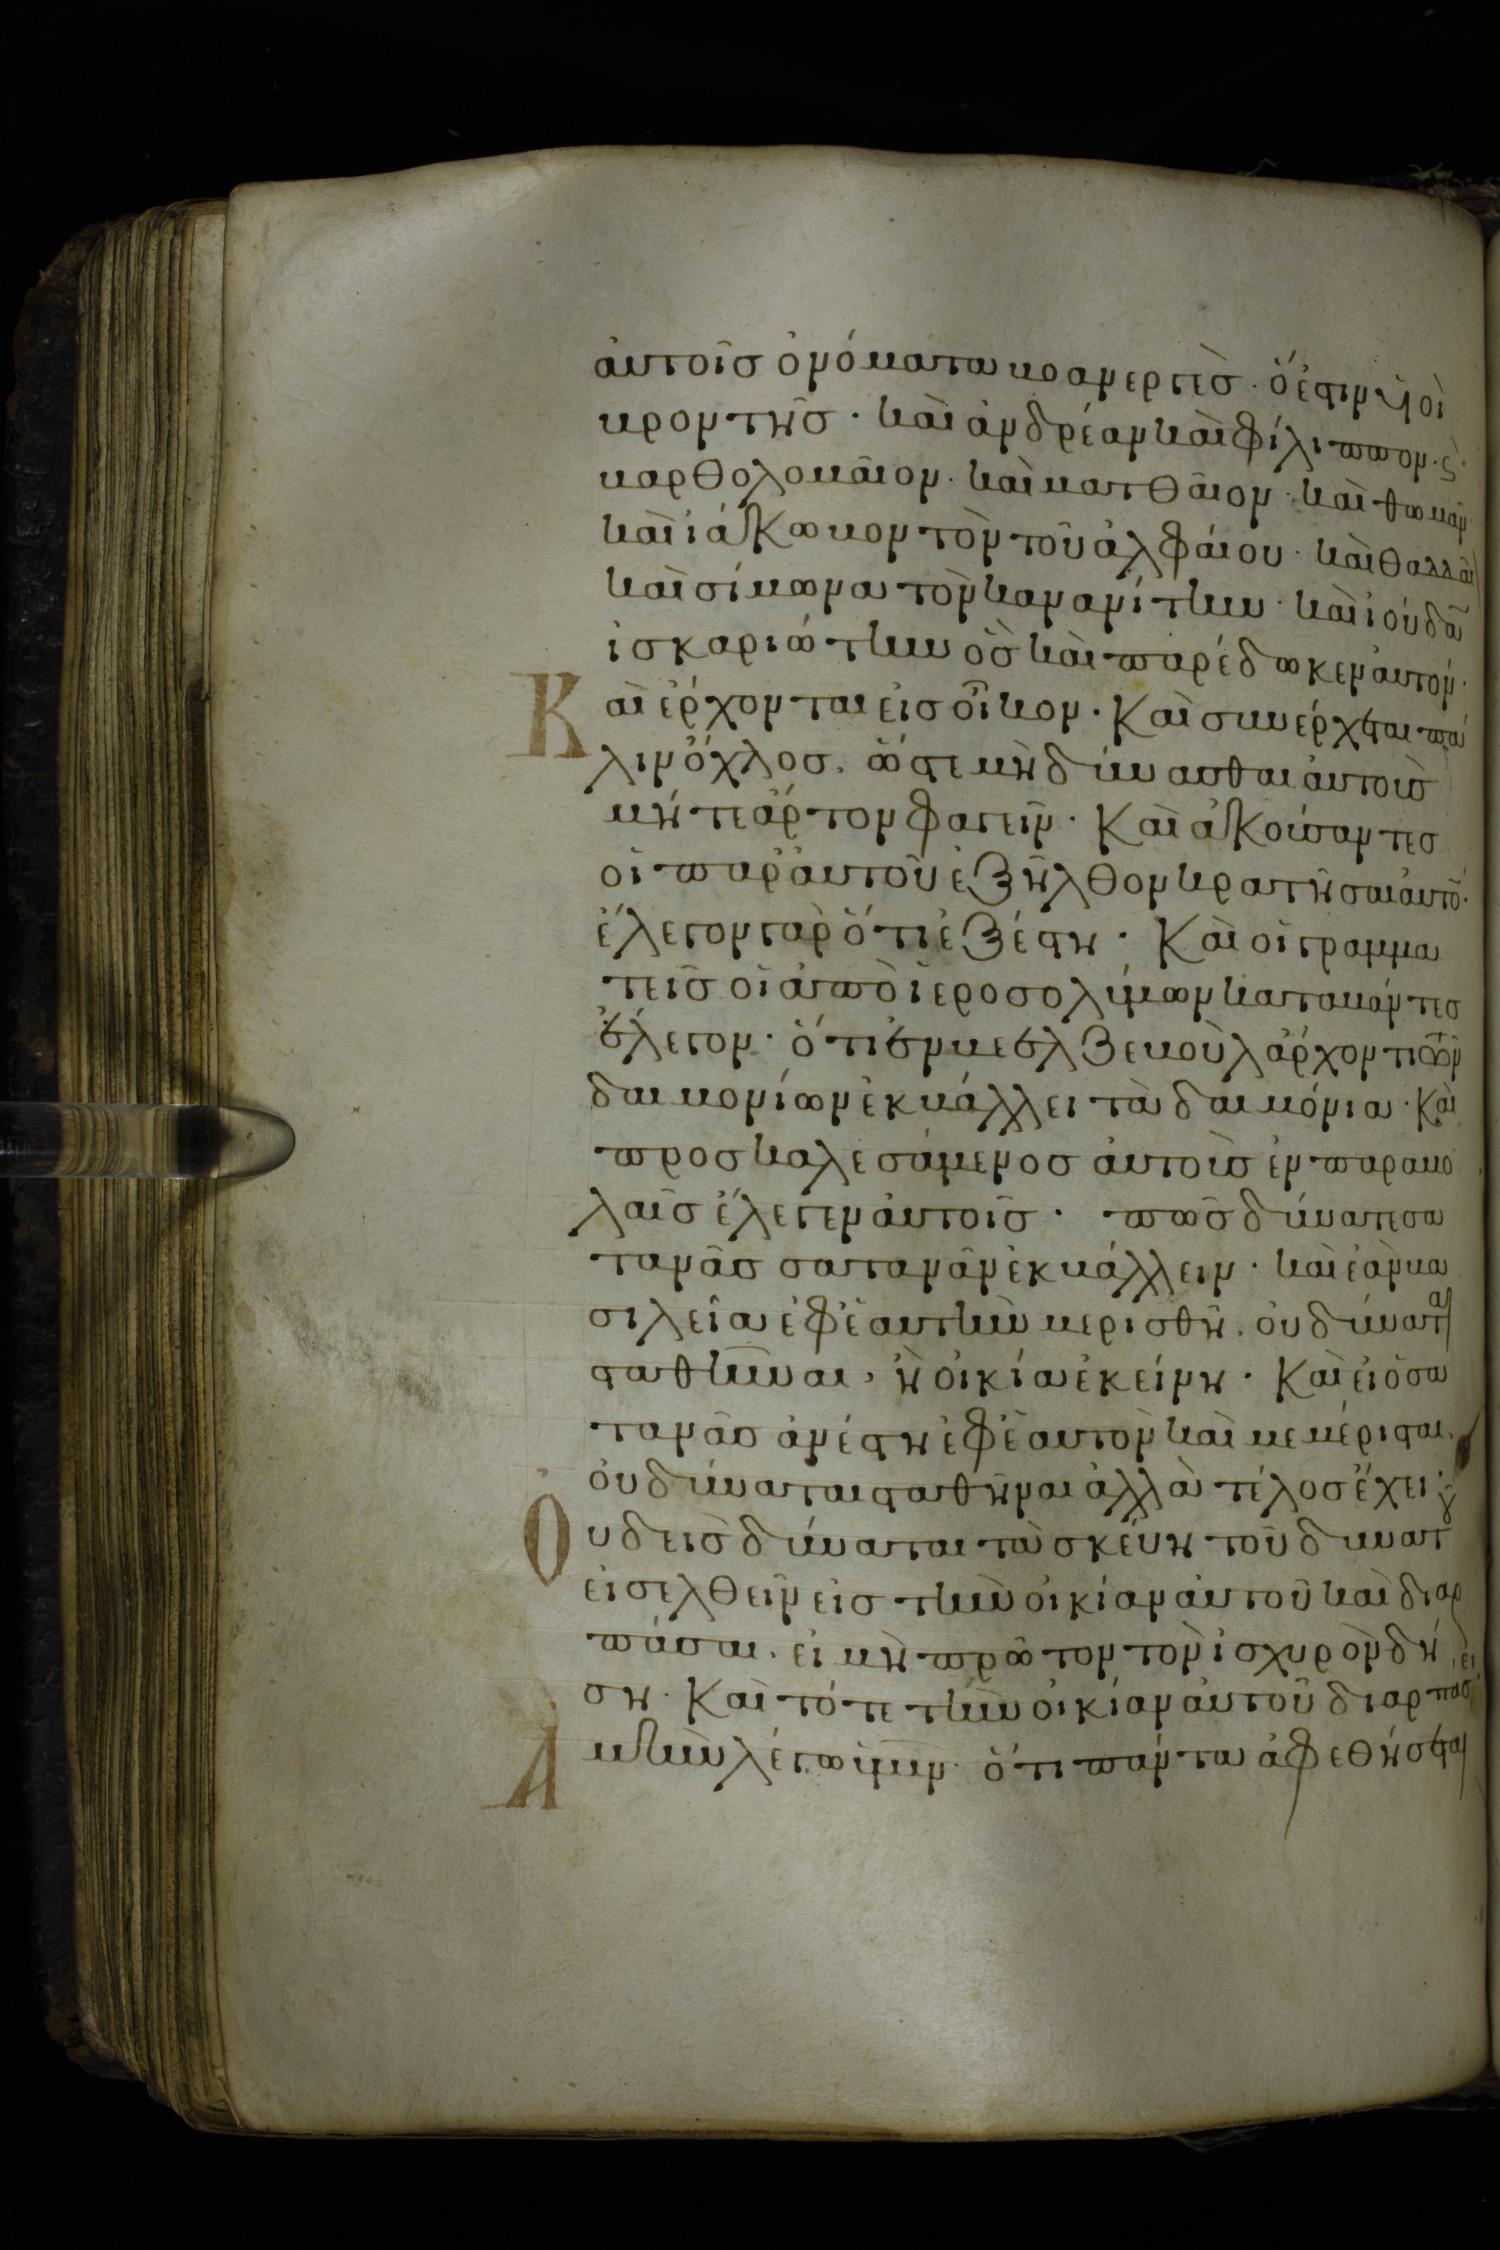 αὐτοῖσ ὀνόματα βοανεργὲσ· ὅ ἐστιν υἱοὶ
βροντῆσ· καὶ ἀνδρέαν καὶ φίλιππον· ϗ
βαρθολομαῖον· καὶ ματθαῖον· καὶ θωμᾶν
καὶ ἰάκωβον τὸν τοῦ ἀλφαίου· καὶ θαδδαῖ
καὶ σίμωνα τὸν κανανίτην· καὶ ἰούδαν
ἰσκαριώτην ὃσ καὶ παρέδωκεν αὐτόν·
Καὶ ἔρχονται εἰσ οἶκον· Καὶ συνέρχεται πά
λιν ὄχλοσ, ὥστε μὴ δύνασθαι αὐτοὺσ
μήτε ἄρτον φαγεῖν· Καὶ ἀκούσαντεσ
οἱ παρ' αὐτοῦ ἐξῆλθον κρατῆσαι αὐτό·
ἔλεγον γὰρ ὅτι ἐξέστη· Καὶ οἱ γραμμα
τεῖσ οἱ ἀπὸ ἱεροσολύμων καταβάντεσ
ἔλεγον· ὅτι ἐν βεελζεβοὺλ ἄρχοντι τῶν
δαιμονίων ἐκβάλλει τὰ δαιμόνια· Καὶ
προσκαλεσάμενοσ αὐτοὺσ ἐν παραβο
λαῖσ ἔλεγεν αὐτοῖσ· πῶσ δύναται σα
τανᾶσ σατανᾶν ἐκβάλλειν· καὶ ἐὰν βα
σιλεία ἐφ' ἑαυτὴν μερισθῆ, οὐ δύναται
σταθῆναι, ἡ οἰκία ἐκείνη· Καὶ εἰ ὁ σα
τανᾶσ ἀνέστη ἐφ' ἑαυτὸν καὶ μεμέρισται,
οὐ δύναται σταθῆναι ἀλλὰ τέλοσ ἔχει·
Οὐδεὶσ δύναται τὰ σκεύη τοῦ δυνατοῦ
εἰσελθεῖν εἰσ τὴν οἰκίαν αὐτοῦ καὶ διαρ
πάσαι, εἰ μὴ πρῶτον τὸν ἰσχυρὸν δή
ση· Καὶ τότε τὴν οἰκίαν αὐτοῦ διαρπάσει
Ἀμὴν λέγω ὑμῖν· ὅτι πάντα ἀφεθήσεται